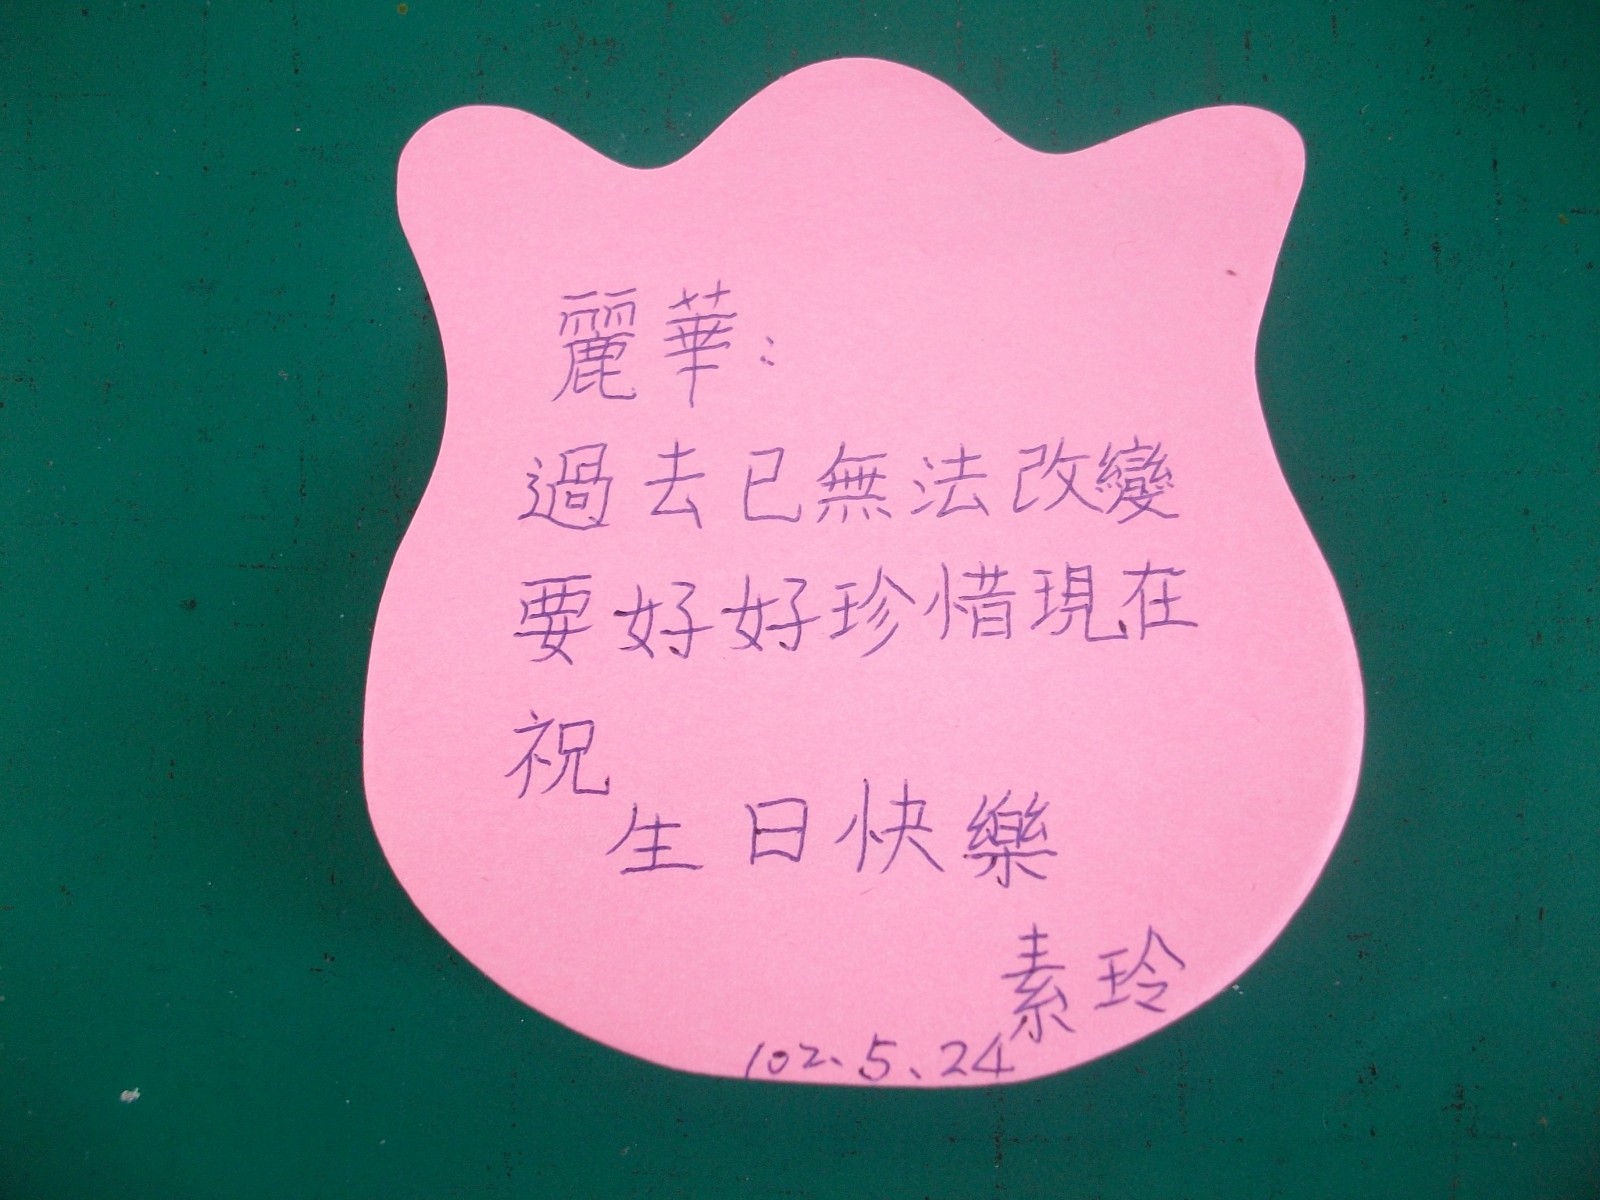 麗華：
過去已無法改變
要好好珍惜現在
祝
生日快樂
素玲
102.5.24